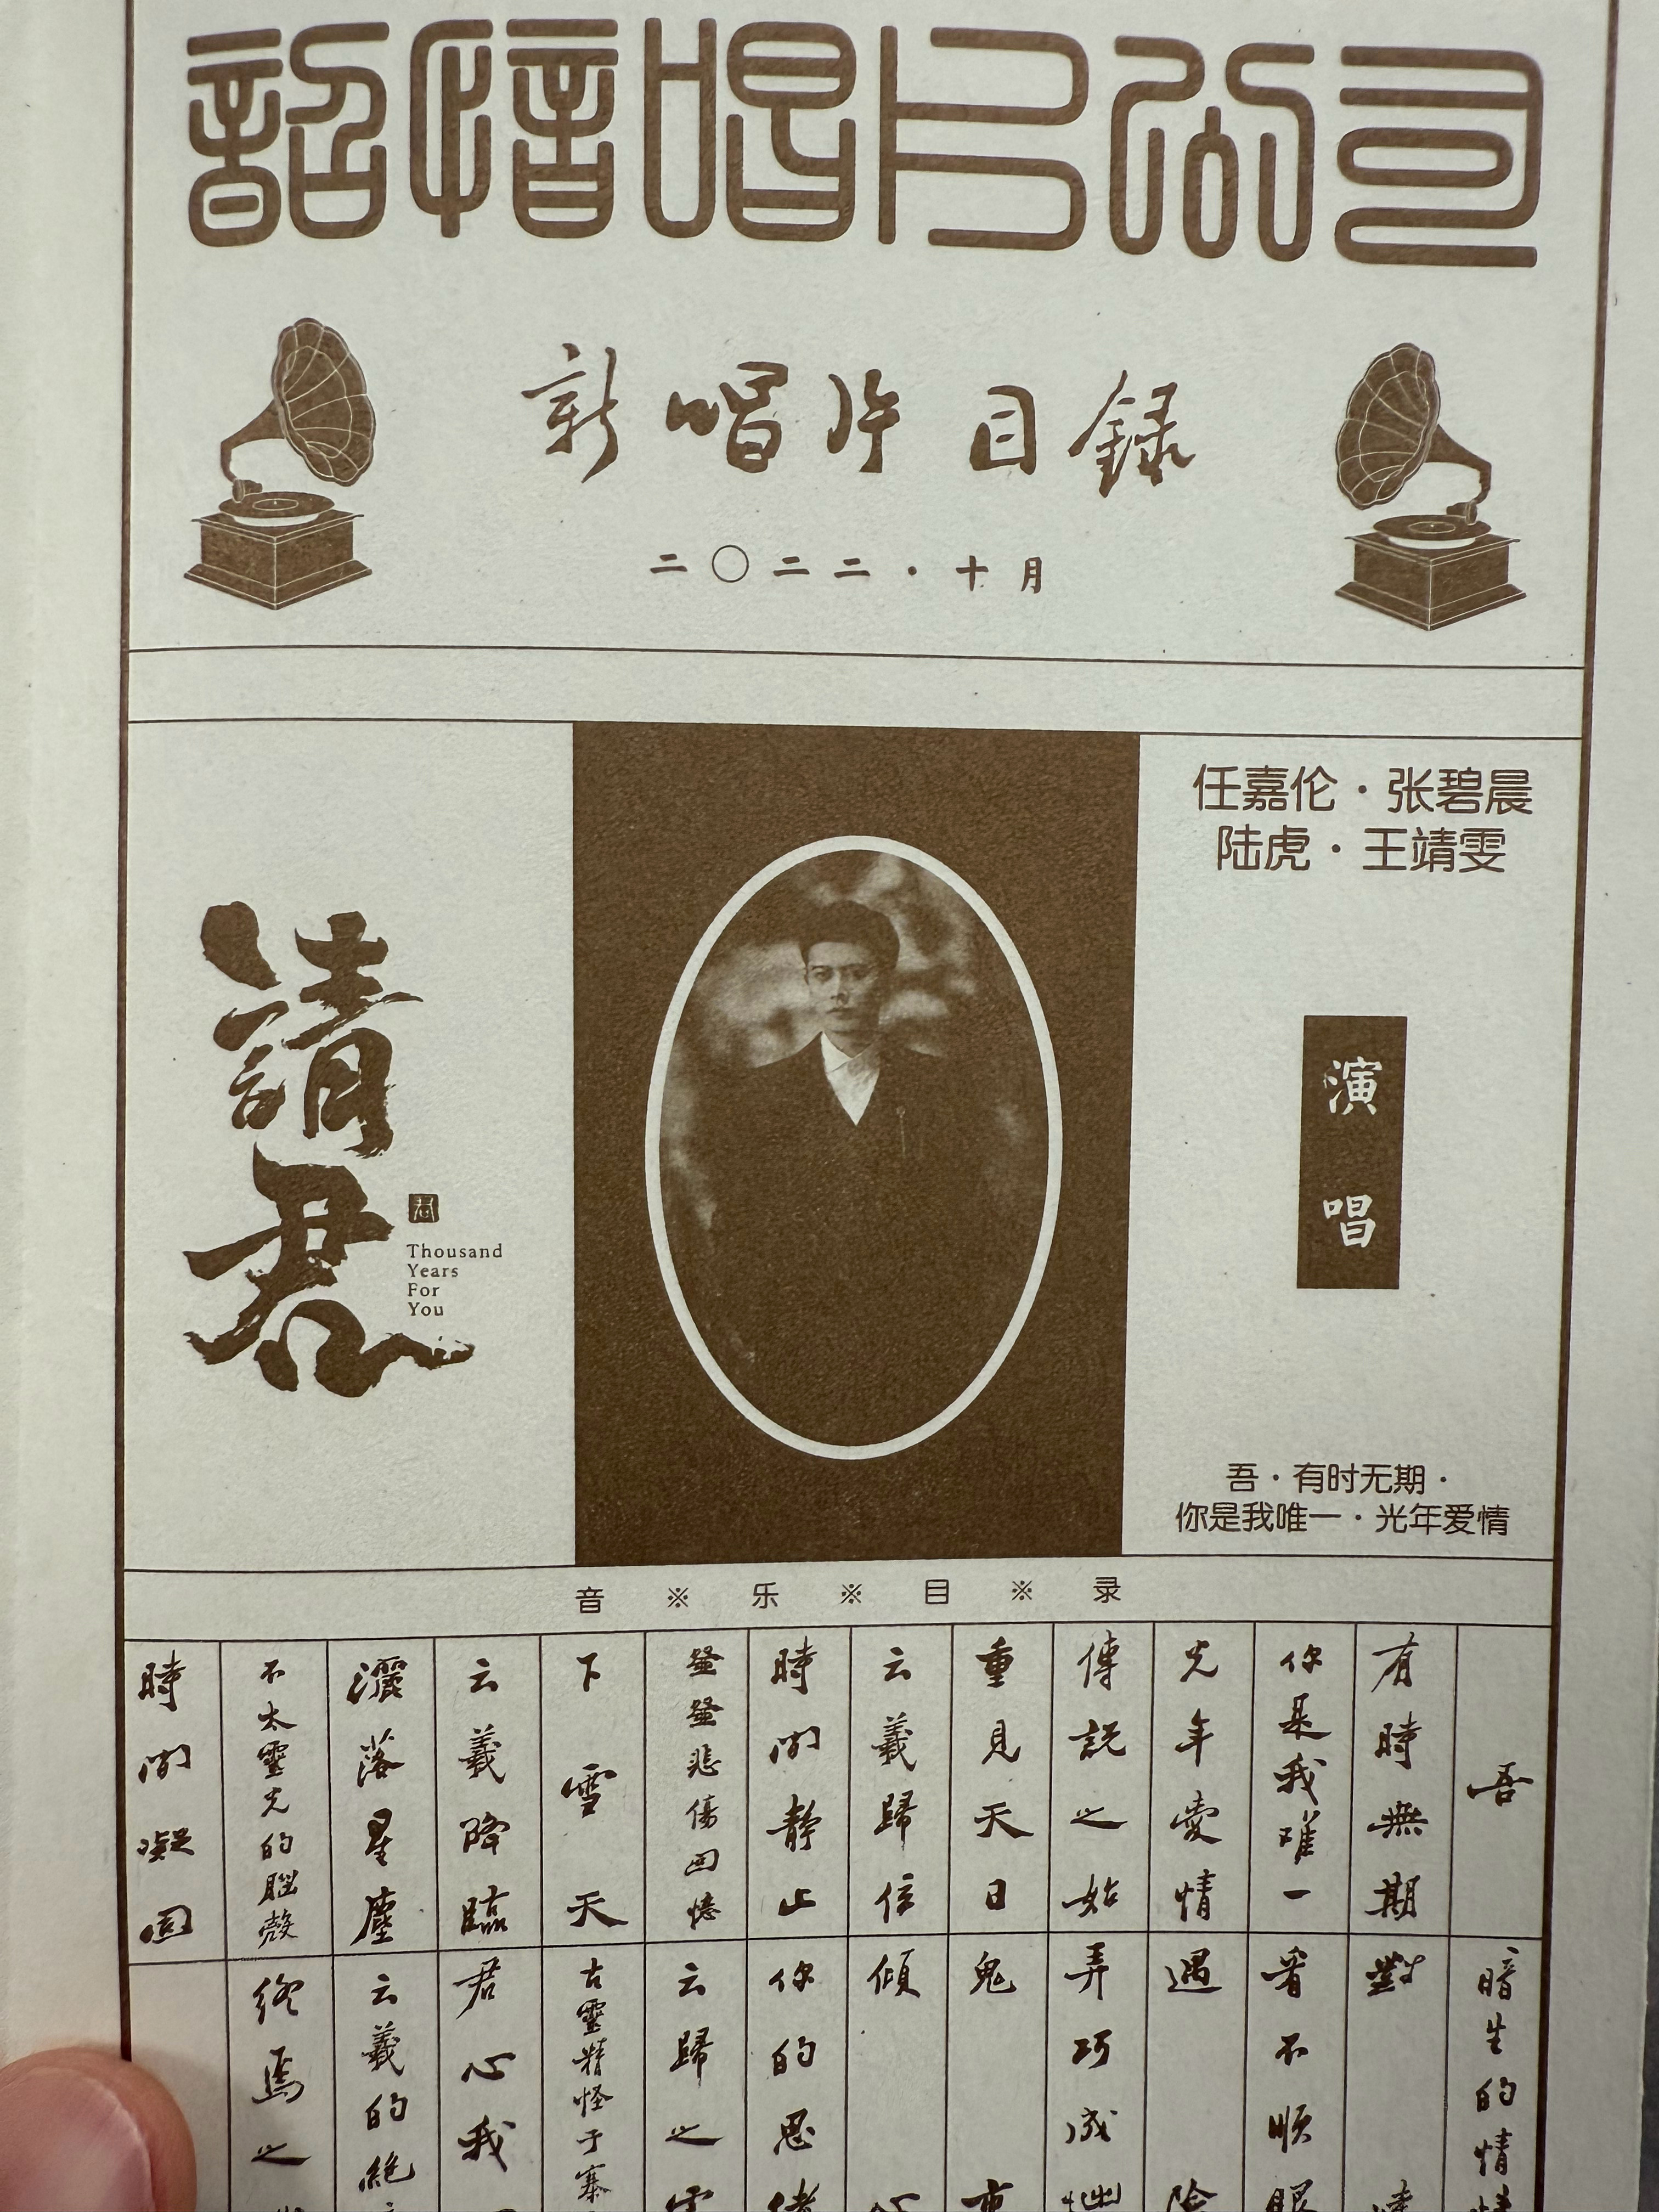 韶愔唱片公司
新唱片目録
二〇二二·十月
請君
Thousand
Years
For
You
任嘉伦·张碧晨
陆虎·王靖雯
演唱
吾·有时无期·
你是我唯一·光年爱情
音※乐※目※录
吾
有時無期
你是我唯一
光年愛情
傳説之始
重見天日
云羲歸位
時間静止
悲傷回憶
下雪天
云羲降臨
灑落星塵
不太靈光的腦殼
時間凝固
暗生的情
對
看不順眼
遇險
弄巧成拙
鬼
傾心
你的思緒
云歸之
古靈精怪于寨
君心我
云羲的絶
終焉之